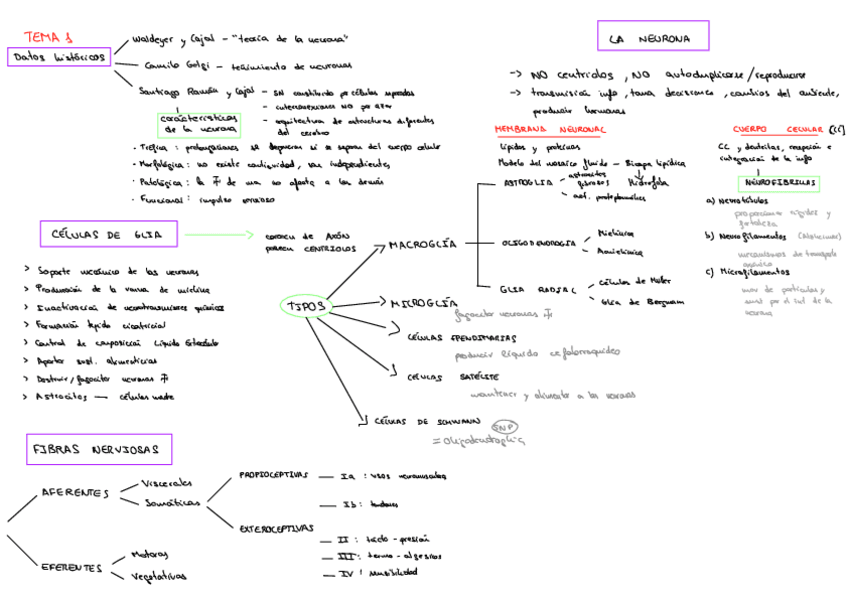 TEMA 1
Datos históricos
Waldeyer y Cajal - "teoría de la neurona"
Camilo Golgi - teñimiento de neuronas
Santiago Ramón y Cajal - SN constituido por células separadas
- interconexiones no por azar
- arquitectura de estructuras diferentes
del cerebro
características
de la neurona
· Trófica : prolongaciones se degeneran si se separan del cuerpo celular
· Morfológica : no existe continuidad, son independientes
· Patológica : la † de una no afecta a las demás
· Funcional : impulso nervioso
LA NEURONA
-> NO centriolos, NO autoduplicarse/reproducirse
-> transmisión info, toma decisiones, cambios del ambiente,
producir hormonas
MEMBRANA NEURONAL
lípidos y proteínas
Modelo del mosaico fluido - Bicapa lipídica
Hidrófoba
CUERPO CELULAR (CC)
CC y dendritas, recepción e
integración de la info
NEUROFIBRILLAS
a) Neurotúbulos
proporcionar rigidez y
fortaleza
b) Neurofilamentos (Alzheimer)
mecanismos de transporte
c) Microfilamentos
mov de partículas y
sust por el
neurona
CÉLULAS DE GLIA
carecen de AXÓN
poseen CENTRIOLOS
> Soporte mecánico de las neuronas
> Producción de la vaina de mielina
> Inactivación de neurotransmisores químicos
> Formación tejido cicatricial
> Control de composición Líquido Extracelular
> Aportar sust. alimenticias
> Destruir/fagocitar neuronas †
> Astrocitos — células madre
TIPOS
MACROGLÍA
ASTROGLIA
astrocitos
fibrosos
ast. protoplasmáticos
OLIGODENDROGLIA
Mielínica
Amielínica
GLIA RADIAL
células de Müller
Glia de Bergmann
MICROGLÍA
fagocitar neuronas †
CÉLULAS EPENDIMARIAS
producir líquido cefalorraquídeo
CÉLULAS SATÉLITE
mantener y alimentar a las neuronas
CÉLULAS DE SCHWANN
SNP
= Oligodendroglia
FIBRAS NERVIOSAS
AFERENTES
Viscerales
Somáticas
PROPIOCEPTIVAS — Ia : husos neuromusculares
— Ib : tendones
EXTEROCEPTIVAS
— II : tacto - presión
— III : termo - algesias
— IV : sensibilidad
EFERENTES
Motoras
Vegetativas